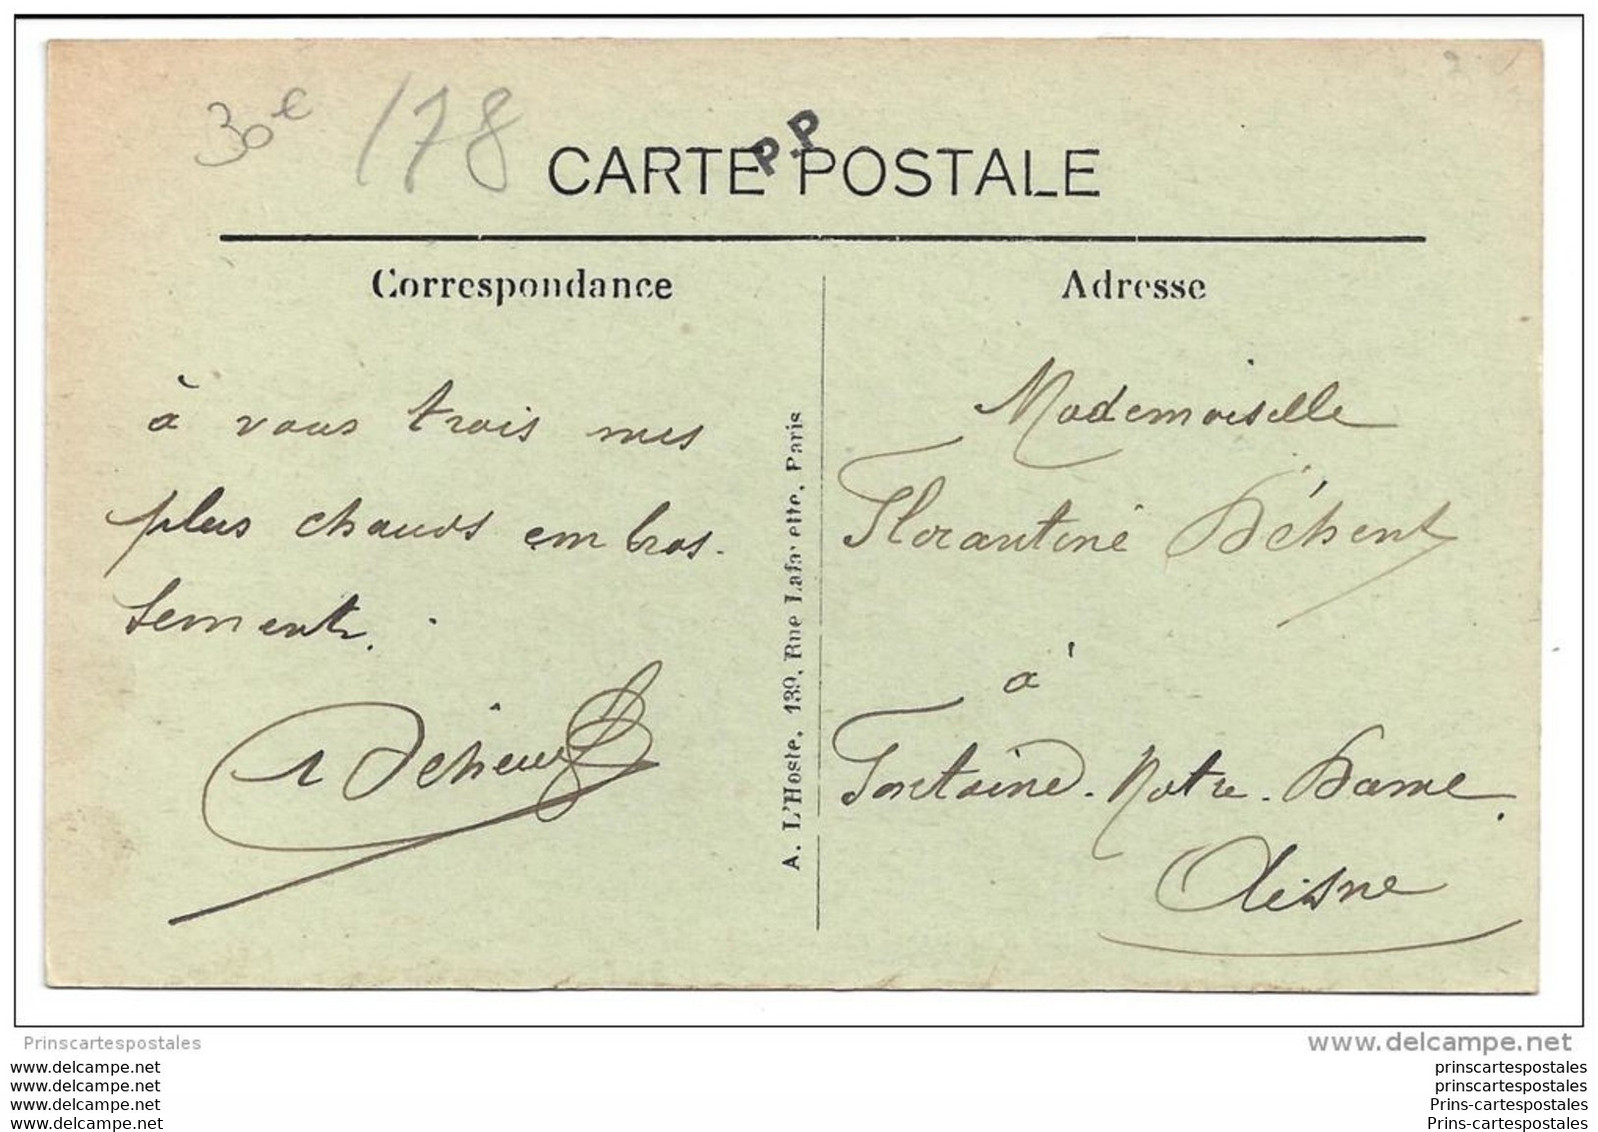 30€ 178
P.P
CARTE POSTALE
Correspondance
à vous trois mes
plus chauds embras-
sements.
A. L'Hoste, 139, Rue Lafayette, Paris
Adresse
Mademoiselle
Florantine Déhent
à
Fontaine-Notre-Dame.
Aisne
Prinscartespostales
www.delcampe.net
www.delcampe.net
www.delcampe.net
www.delcampe.net
www.delcampe.net
prinscartespostales
prinscartespostales
Prins-cartespostales
Prins-cartespostales